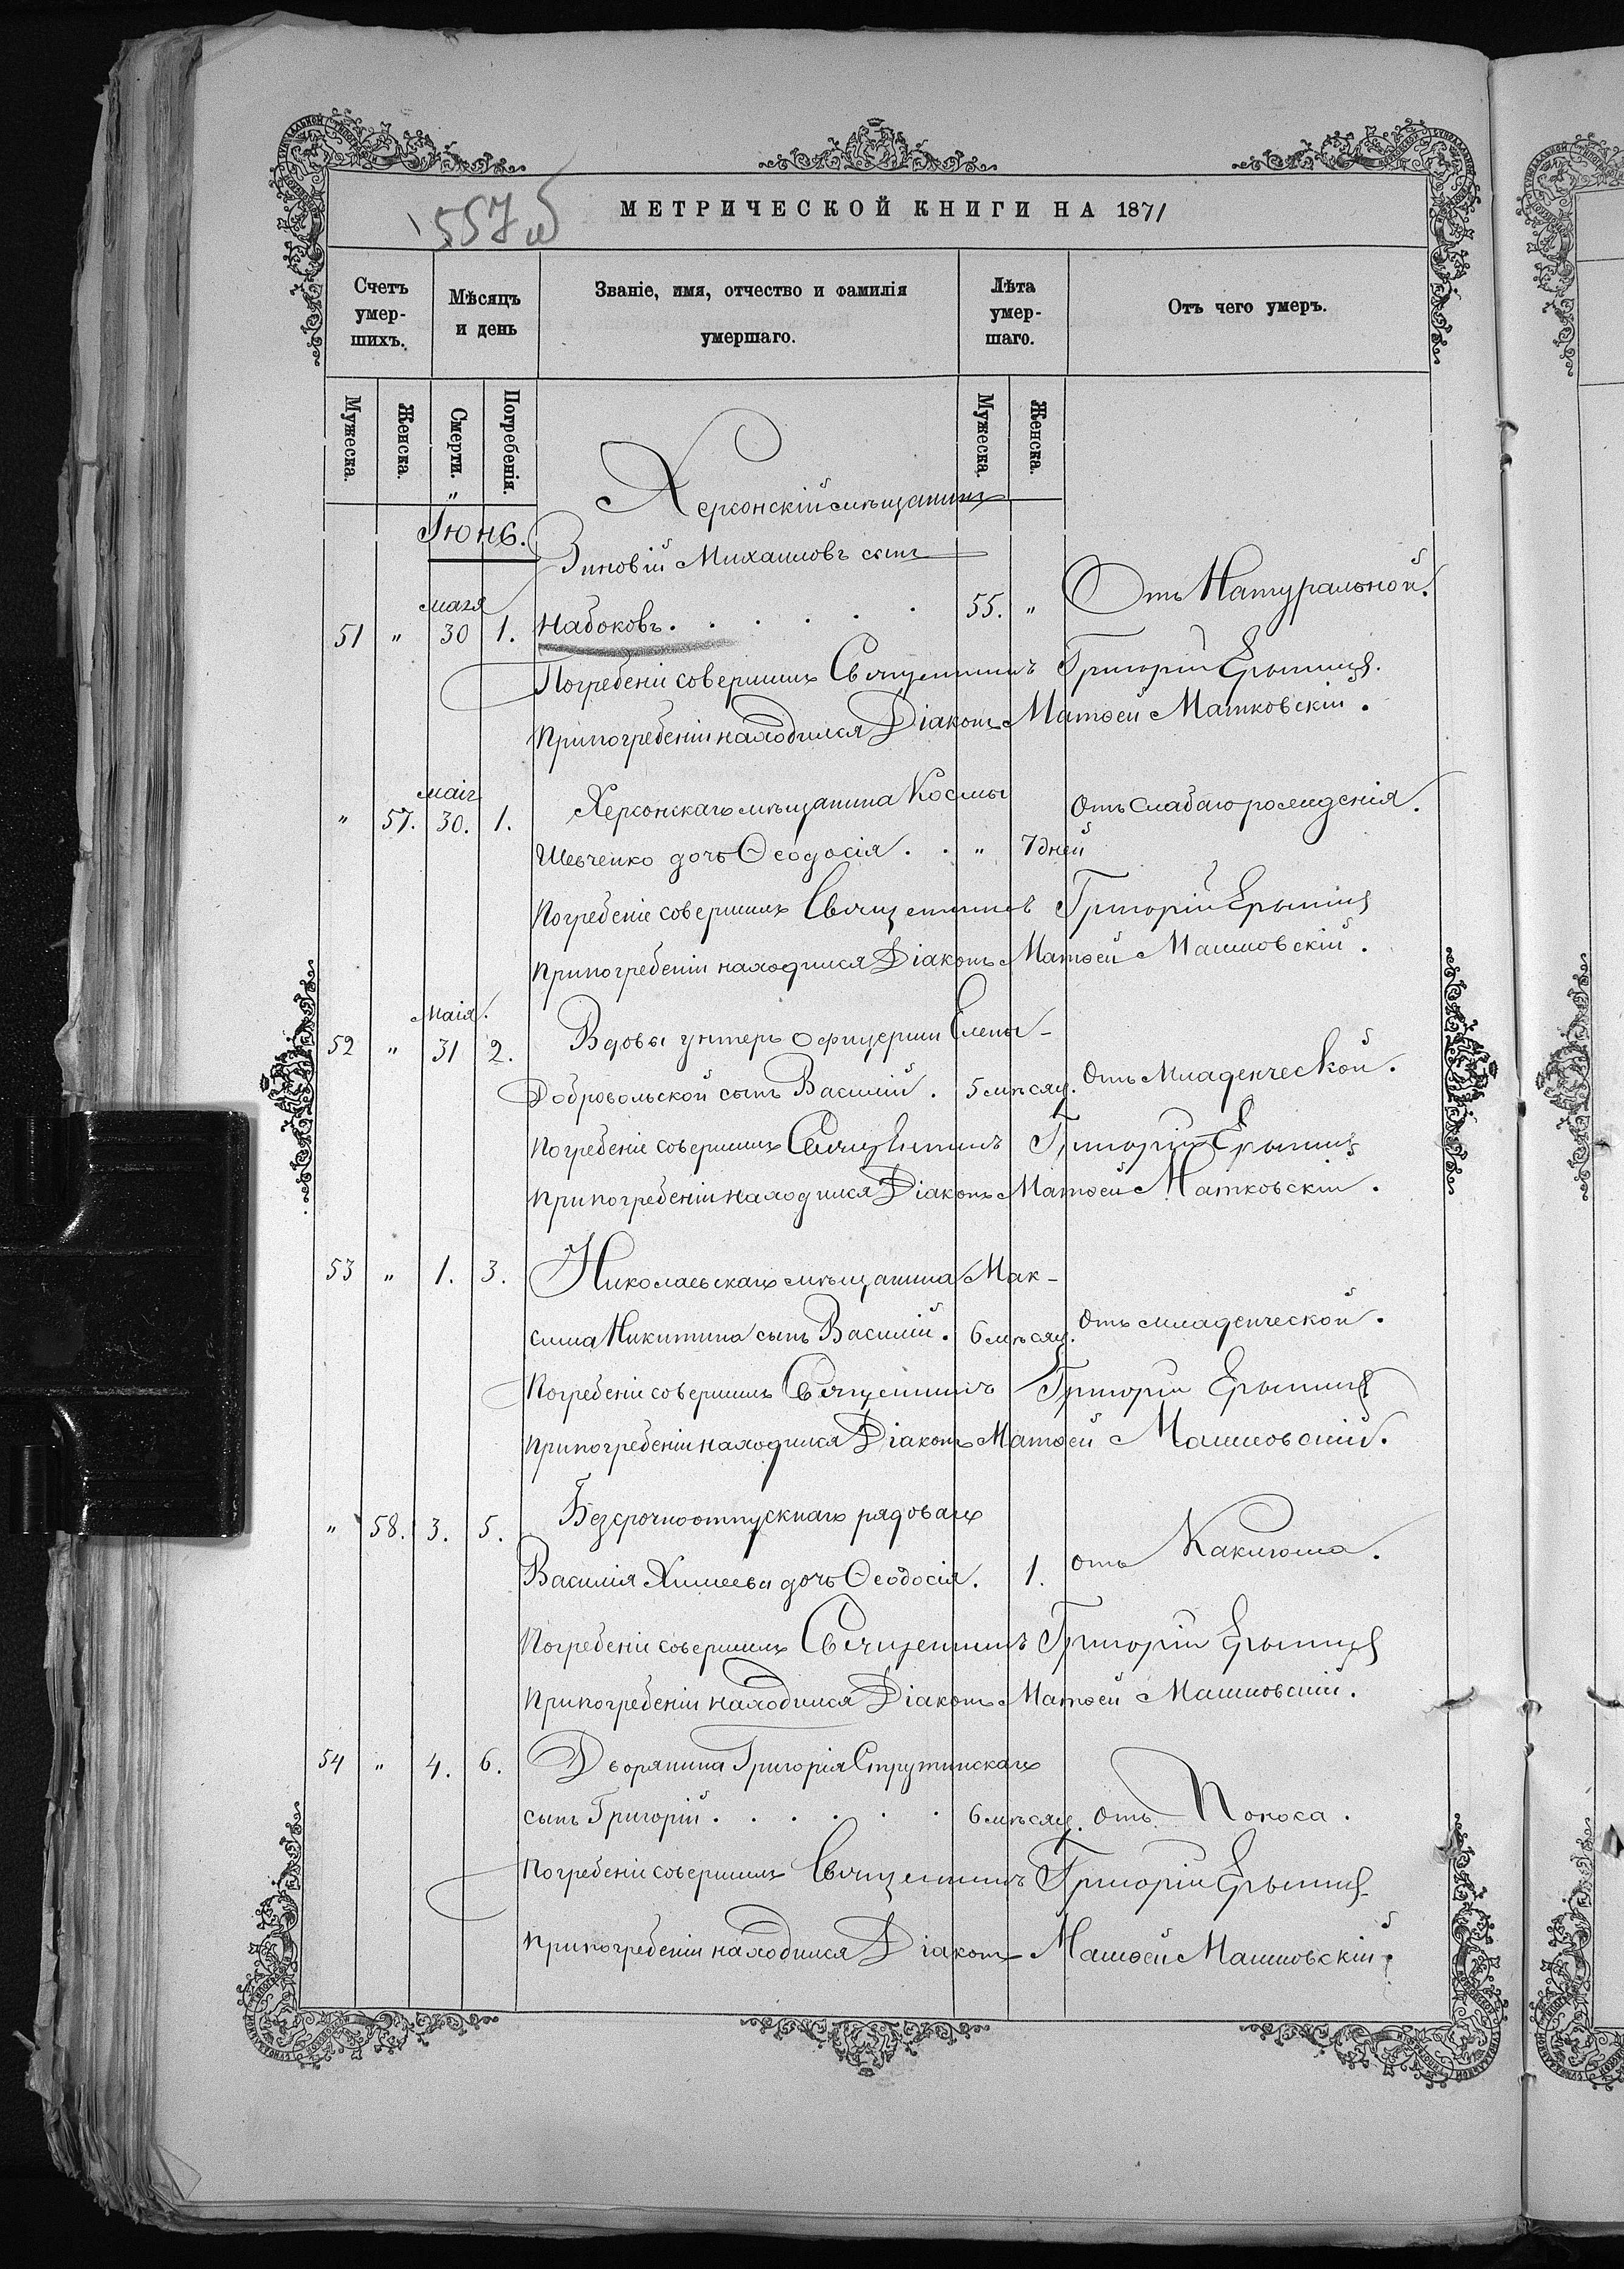 557 об
МЕТРИЧЕСКОЙ КНИГИ НА 1871
Счетъ умер-шихъ. Мѣсяцъ и день Званіе, имя, отчество и фамилія умершаго. Лѣта умер-шаго. Отъ чего умеръ.
Мужеска. Женска. Смерти. Погребенія. Мужеска Женска.
Херсонскій мѣщанинъ
Іюнь.
Зиновій Михаиловъ сынъ
мая
51 " 30 1. Набоковъ. . . . . . 55. " Отъ Натуральной.
Погребеніе совершилъ Священникъ Григорій
При погребеніи находился Діаконъ Матѳей Матковскій.
маія
" 57. 30. 1. Херсонскаго мѣщанина Космы Отъ Слабаго рожденія.
Шевченко дочь Ѳеодосія . . " 7 дней
Погребеніе совершилъ Священникъ Григорій
При погребеніи находился Діаконъ Матѳей Матковскій.
Маія.
52 " 31 2. Вдовы унтеръ офицерши Елены
Добровольской сынъ Василій . 5 мѣсяц. Отъ Младенческой.
Погребеніе совершилъ Священникъ Григорій
При погребеніи находился Діаконъ Матѳей Матковскій.
53 " 1. 3. Николаевскаго мѣщанина Мак-
сима Никитина сынъ Василій. 6 мѣсяц. Отъ младенческой.
Погребеніе совершилъ Священникъ Григорій
При погребеніи находился Діаконъ Матѳей Матковскій.
" 58. 3. 5. Безсрочноотпускнаго рядоваго
Василія дочь Ѳеодосія. 1. отъ
Погребеніе совершилъ Священникъ Григорій
При погребеніи находился Діаконъ Матѳей Матковскій.
54 " 4. 6. Дворянина Григорія Струтинскаго
сынъ Григорій . . . . . . 6 мѣсяц. Отъ Поноса.
Погребеніе совершилъ Священникъ Григорій
При погребеніи находился Діаконъ Матѳей Матковскій.